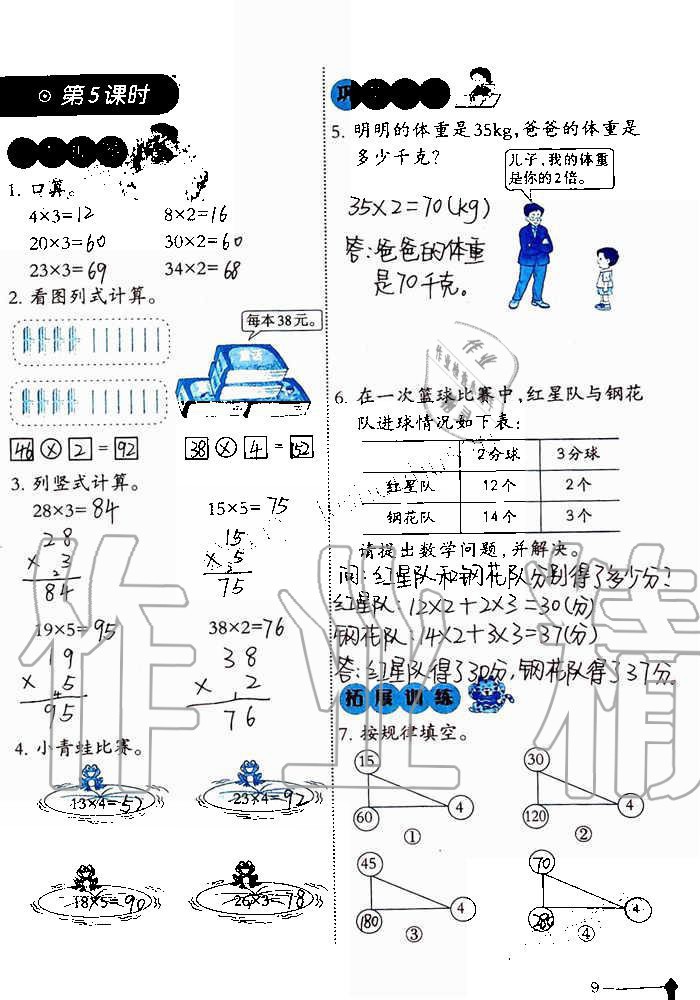 第5课时
1. 口算。
4×3=12 8×2=16
20×3=60 30×2=60
23×3=69 34×2=68
2. 看图列式计算。
每本38元。
童话
46 × 2 = 92 38 × 4 = 152
3. 列竖式计算。
28×3=84 15×5=75
28 15
× 3 × 5
2 2
84 75
19×5=95 38×2=76
19 38
× 5 × 2
4 1
95 76
4. 小青蛙比赛。
13×4=52 23×4=92
18×5=90 26×3=78
5. 明明的体重是35kg,爸爸的体重是
多少千克?
儿子,我的体重
是你的2倍。
35×2=70(kg)
答:爸爸的体重
是70千克。
6. 在一次篮球比赛中,红星队与钢花
队进球情况如下表:
2分球 3分球
红星队 12个 2个
钢花队 14个 3个
请提出数学问题,并解决。
问:红星队和钢花队分别得了多少分?
红星队:12×2+2×3=30(分)
钢花队:14×2+3×3=37(分)
答:红星队得了30分,钢花队得了37分。
拓展训练
7. 按规律填空。
15 30
4 4
60 120
① ②
45 70
4 4
180 280
③ ④
9
作业精